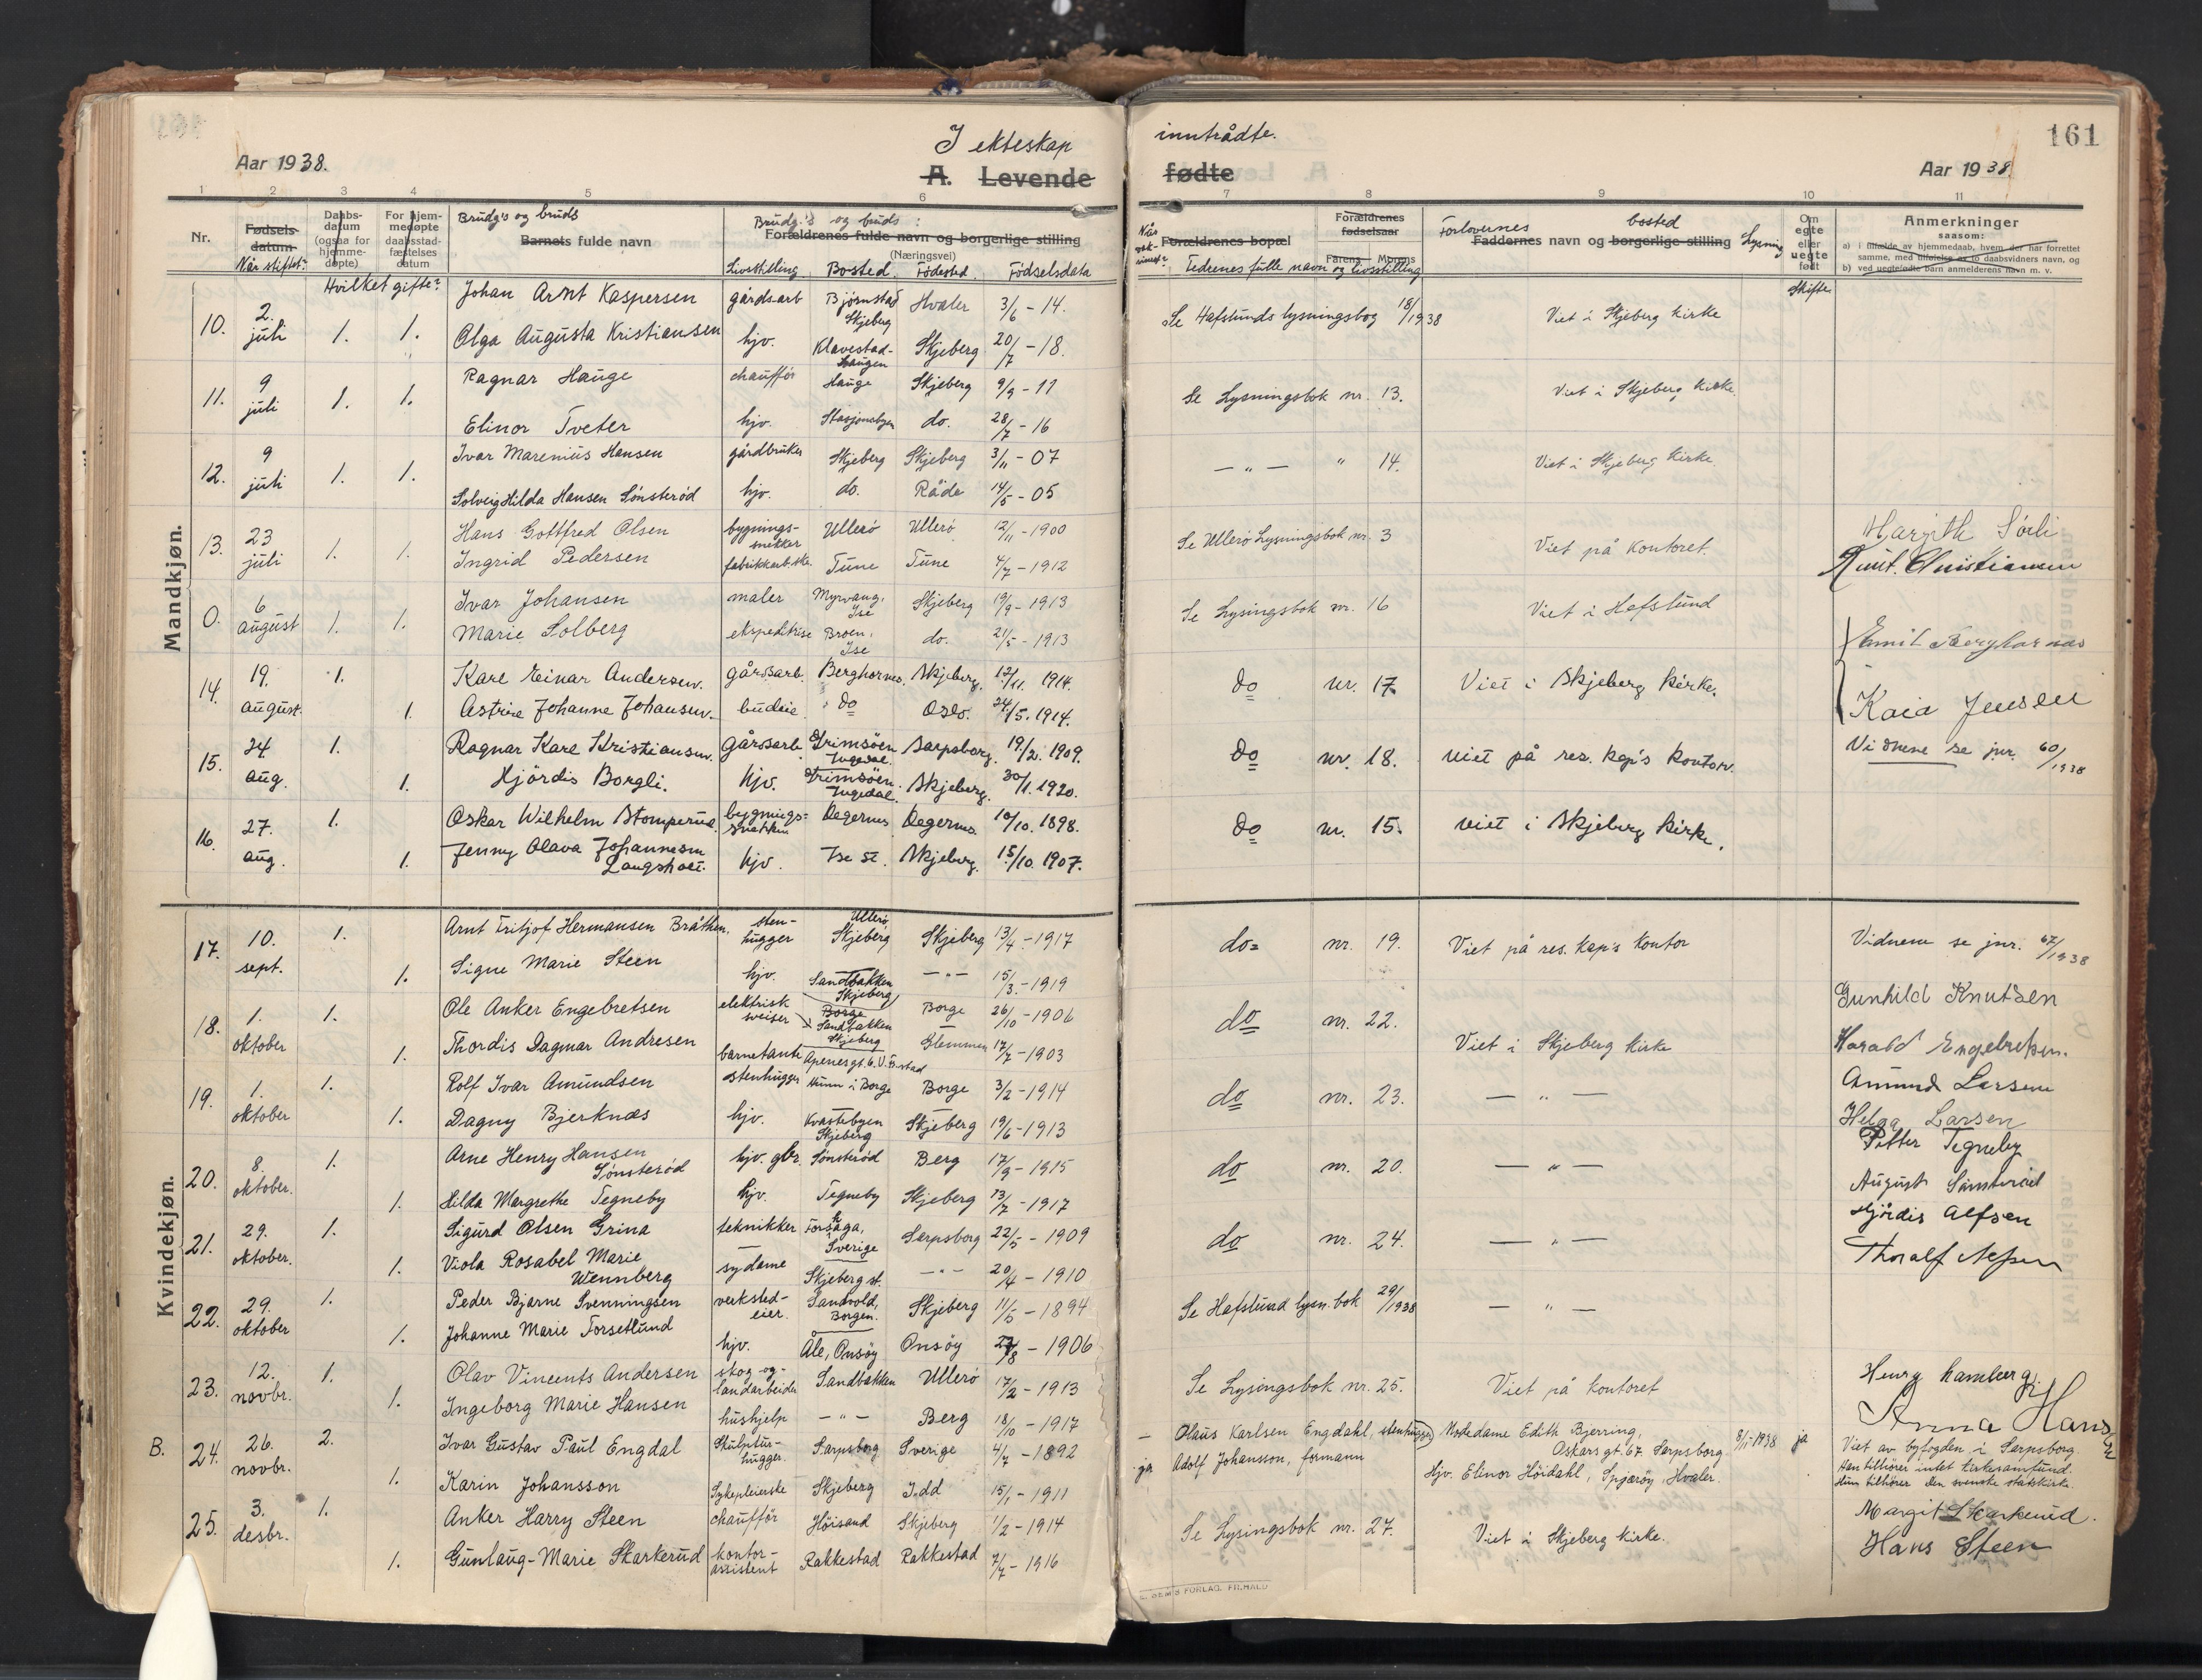 I ekteskap inntrådte.
161
Aar 1938. A. Levende fødte Aar 1938.
1 2 3 4 5 6 7 8 9 10 11
Nr.
Fødsels datum Når stiftet?
Daabsdatum (ogsaa for hjemmedøpte)
For hjemmedøpte daabsstadfæstelses datum
Hvilket gifte?
Brudg's og bruds
Barnets fulde navn
Brudg.'s og bruds:
Forældrenes fulde navn og borgerlige stilling
(Næringsvei)
Livsstilling Bosted Fødested Fødselsdata
Forældrenes bopæl
Forældrenes fødselsaar
Farens Morens
Fedrenes fulle navn og livsstilling
Forlovernes bosted
Faddernes navn og borgerlige stilling
Lysning
Om egte eller uegte født
Skifte
Anmerkninger
saasom:
a) i tilfælde av hjemmedaab, hvem der har forrettet samme, med tilføielse av to daabsvidners navn, og
b) ved uegtefødte barn anmelderens navn m. v.
Mandkjøn.
10. 2. juli 1. 1. Johan Arnt Kaspersen gårdsarb Bjørnstad Skjeberg Hvaler 3/6 - 14. Se Hafslunds lysningsbog 18/1938 Viet i Skjeberg kirke
Olga Augusta Kristiansen hjv. Klavestadhaugen Skjeberg 20/7 - 18.
11. 9 juli 1. 1. Ragnar Hauge chauffør Hauge Skjeberg 9/9 - 11 Se Lysningsbok nr. 13. Viet i Skjeberg kirke
Elinor Tveter hjv. Stasjonsbyen do. 28/7 - 16
12. 9 juli 1. 1. Ivar Marenius Hansen gårdbruker Skjeberg Skjeberg 3/11 - 07 — " — " 14. Viet i Skjeberg kirke
Solveig Hilda Hansen Sønsterød hjv. do. Råde 14/5 - 05
13. 23 juli 1. 1. Hans Gottfred Olsen bygningssnekker Ullerø Ullerø 12/11 - 1900 Se Ullerø Lysningsbok nr. 3 Viet på kontoret. Margith Sørli
Ingrid Pedersen fabrikkarb.ske. Tune Tune 4/7 - 1912 Knut. Christiansen
0. 6 august 1. 1. Ivar Johansen maler Myrvang, Ise Skjeberg 19/9 - 1913 Se Lysingsbok nr. 16 Viet i Hafslund
Marie Solberg ekspeditrise Broen, Ise do. 21/5 - 1913
14. 19. august. 1. Kare Einar Andersen. gårdsarb. Berghornes. Skjeberg. 12/11. 1914. do nr. 17. Viet i Skjeberg kirke. Emil Berghornes
1. Astrie Johanne Johansen. budeie do Oslo. 24/5. 1914. Kaia Jensen
15. 24. aug. 1. Ragnar Kare Kristiansen gårdsarb Grimsøen Ingedal. Sarpsborg. 19/2. 1909. do nr. 18. viet på res. kap's kontor. Vidnene se jnr. 60/1938
1. Hjördis Borgli. hjv. Grimsöen Ingedal. Skjeberg. 30/1. 1920.
16. 27. aug. 1. Oskar Wilhelm Stomperud bygningssnekker Degernes Degernes 10/10. 1898. do nr. 15. viet i Skjeberg kirke.
1. Jenny Olava Johannesen Langsholt. hjv. Ise st. Skjeberg. 15/10. 1907.
Kvindekjøn.
17. 10. sept. 1. Arnt Fritjof Hermansen Bråthen, stenhugger Ullerø, Skjeberg Skjeberg 13/4 - 1917 do= nr. 19. Viet på res. kap's kontor Vidnene se jnr. 67/1938
1. Signe Marie Steen hjv. Sandbakken Skjeberg — " — 15/3. - 1919
18. 1. oktober 1. Ole Anker Engebretsen elektrisk sveiser Borge Sandbakken Skjeberg Borge 26/10 - 1906 do nr. 22. Viet i Skjeberg kirke Gunhild Knutsen
1. Thordis Dagmar Andresen barnetante Apenesgt. 6. V. F.stad Glemmen 17/7 - 1903 Harald Engebretsen.
19. 1. oktober 1. Rolf Ivar Amundsen stenhugger Hunn i Borge Borge 3/2 - 1914 do nr. 23. — " — Amund Larsen
1. Dagny Bjerknæs hjv. Kvastebyen Skjeberg Skjeberg 19/6 - 1913 Helga Larsen
20. 8. oktober. 1. Arne Henry Hansen Sønsterød hjv. gbr. Sønsterød Berg 17/9 - 1915 do nr. 20. — " — Petter Tegneby
1. Hilda Margrethe Tegneby hjv. Tegneby Skjeberg 13/7 - 1917 August Sønsterød
21. 29. oktober. 1. Sigurd Olsen Grina teknikker Forshaga, Sverige Sarpsborg 22/5 - 1909 do nr. 24. — " — Hjørdis Alfsen
1. Viola Rosabel Marie Wennberg sydame Skjeberg st. — " — 20/4 - 1910 Thoralf
22. 29. oktober 1. Peder Bjarne Svenningsen verkstedeier. Sandvold, Borgen. Skjeberg 11/5 - 1894 Se Hafslund lysn. bok 29/1938 — " —
1. Johanne Marie Torsetlund hjv. Åle, Onsøy Onsøy 27/8 - 1906
23. 12. novbr. 1. Olav Vincents Andersen skog- og landarbeider Sandbakken Ullerø 17/2 - 1913 Se Lysingsbok nr. 25. Viet på kontoret Henry Ramberg.
1. Ingeborg Marie Hansen hushjelp — " — Berg 18/10 - 1917 Anna Hans
B. 24. 26. novbr. 2. Ivar Gustav Paul Engdal Skulpturhugger. Sarpsborg Sverige 4/7 - 1892 — Olaus Karlsen Engdahl, stenhugger Motedame Edith Bjerring, Oskars gt. 67 Sarpsborg. 8/11 1938 ja Viet av byfogden i Sarpsborg.
1. Karin Johansson Sykepleierske Skjeberg Idd 15/1 - 1911 ja Adolf Johansson, formann Hjv. Elinor Höidahl, Spjærøy, Hvaler. Han tilhører intet kirkesamfund. Hun tilhører den svenske statskirke.
25. 3. desbr. 1. Anker Harry Steen chauffør Höisand Skjeberg 1/2 - 1914 Se Lysingsbok nr. 27. Viet i Skjeberg kirke. Margit Skarkerud.
1. Gunlaug-Marie Skarkerud kontorassistent Rakkestad Rakkestad 7/7 - 1916 Hans Steen
E. SEM'S FORLAG, FR.HALD